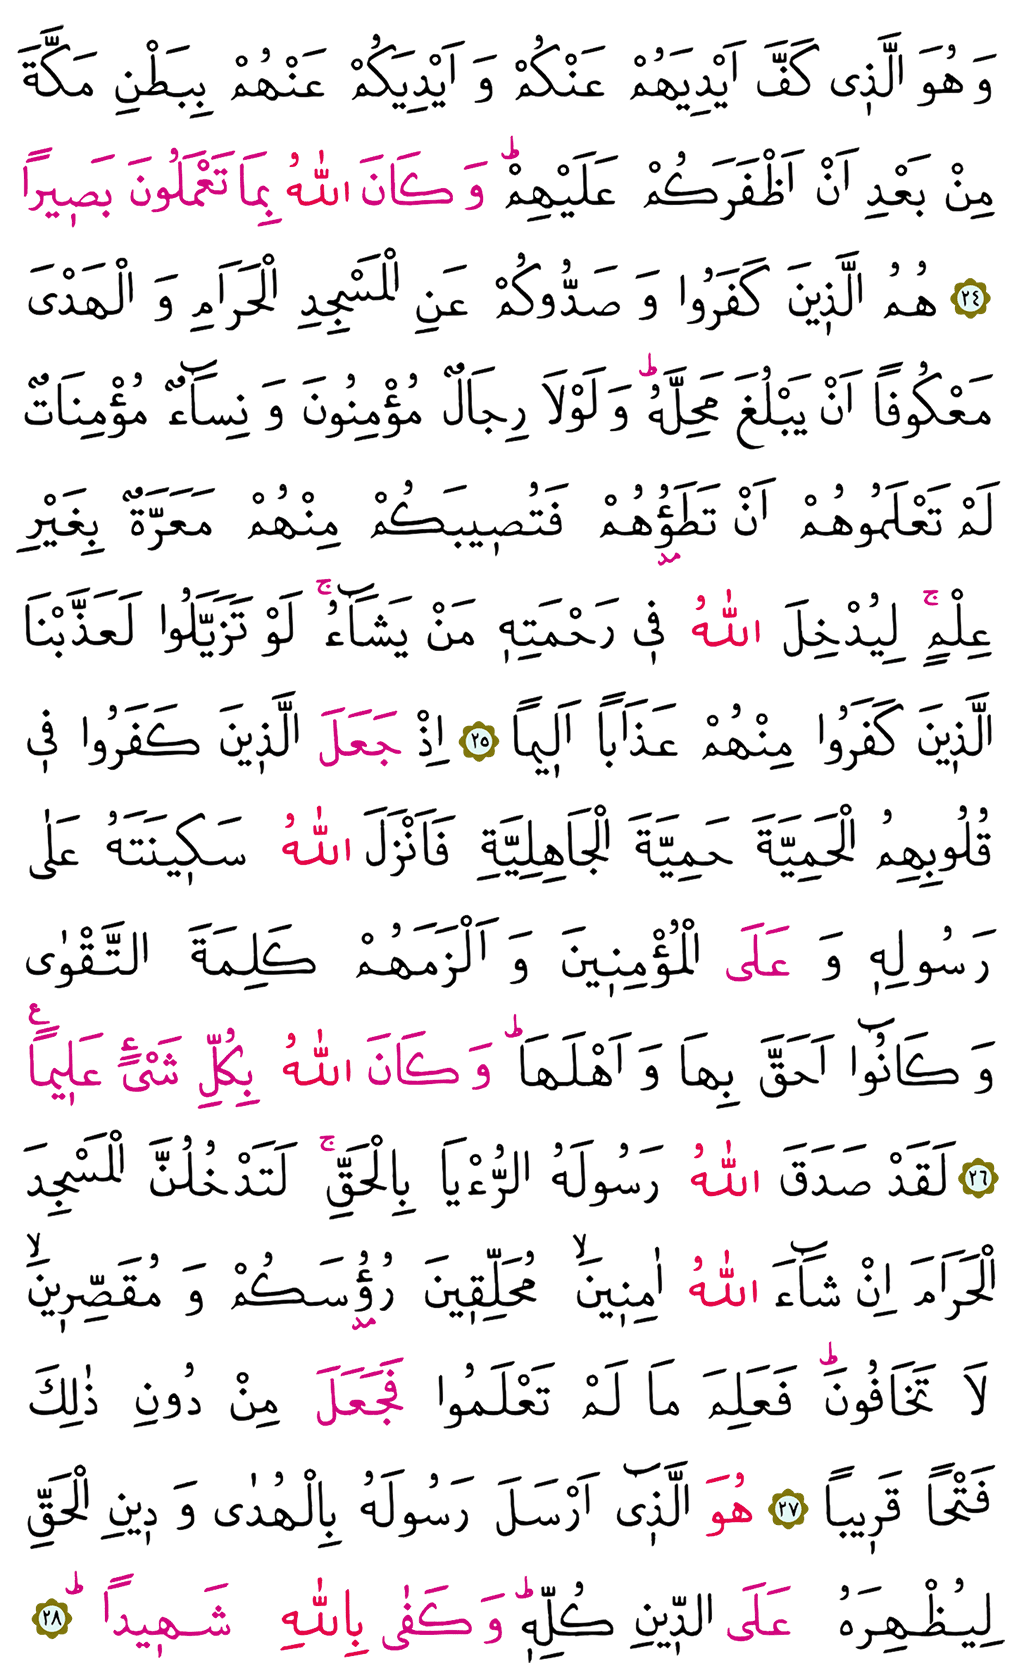 وَ هُوَ الَّذ۪ى كَفَّ اَيْدِيَهُمْ عَنْكُمْ وَ اَيْدِيَكُمْ عَنْهُمْ بِبَطْنِ مَكَّةَ
مِنْ بَعْدِ اَنْ اَظْفَرَكُمْ عَلَيْهِمْۜ وَ كَانَ اللّٰهُ بِمَا تَعْمَلُونَ بَص۪يراً
﴿٢٤﴾ هُمُ الَّذ۪ينَ كَفَرُوا وَ صَدُّوكُمْ عَنِ الْمَسْجِدِ الْحَرَامِ وَ الْهَدْىَ
مَعْكُوفاً اَنْ يَبْلُغَ مَحِلَّهُۜ وَ لَوْلَا رِجَالٌ مُؤْمِنُونَ وَ نِسَٓاءٌ مُؤْمِنَاتٌ
لَمْ تَعْلَمُوهُمْ اَنْ تَطَؤُ۫هُمْ فَتُص۪يبَكُمْ مِنْهُمْ مَعَرَّةٌ بِغَيْرِ
عِلْمٍۚ لِيُدْخِلَ اللّٰهُ ف۪ى رَحْمَتِه۪ مَنْ يَشَٓاءُۚ لَوْ تَزَيَّلُوا لَعَذَّبْنَا
الَّذ۪ينَ كَفَرُوا مِنْهُمْ عَذَاباً اَل۪يماً ﴿٢٥﴾ اِذْ جَعَلَ الَّذ۪ينَ كَفَرُوا ف۪ى
قُلُوبِهِمُ الْحَمِيَّةَ حَمِيَّةَ الْجَاهِلِيَّةِ فَاَنْزَلَ اللّٰهُ سَك۪ينَتَهُ عَلٰى
رَسُولِه۪ وَ عَلَى الْمُؤْمِن۪ينَ وَ اَلْزَمَهُمْ كَلِمَةَ التَّقْوٰى
وَ كَانُٓوا اَحَقَّ بِهَا وَ اَهْلَهَاۜ وَ كَانَ اللّٰهُ بِكُلِّ شَىْءٍ عَل۪يماً۟
﴿٢٦﴾ لَقَدْ صَدَقَ اللّٰهُ رَسُولَهُ الرُّءْيَا بِالْحَقِّۚ لَتَدْخُلُنَّ الْمَسْجِدَ
الْحَرَامَ اِنْ شَٓاءَ اللّٰهُ اٰمِن۪ينَۙ مُحَلِّق۪ينَ رُؤُ۫سَكُمْ وَ مُقَصِّر۪ينَۙ
لَا تَخَافُونَۜ فَعَلِمَ مَا لَمْ تَعْلَمُوا فَجَعَلَ مِنْ دُونِ ذٰلِكَ
فَتْحاً قَر۪يباً ﴿٢٧﴾ هُوَ الَّذ۪ٓى اَرْسَلَ رَسُولَهُ بِالْهُدٰى وَ د۪ينِ الْحَقِّ
لِيُظْهِرَهُ عَلَى الدّ۪ينِ كُلِّه۪ۜ وَ كَفٰى بِاللّٰهِ شَه۪يداًۜ ﴿٢٨﴾